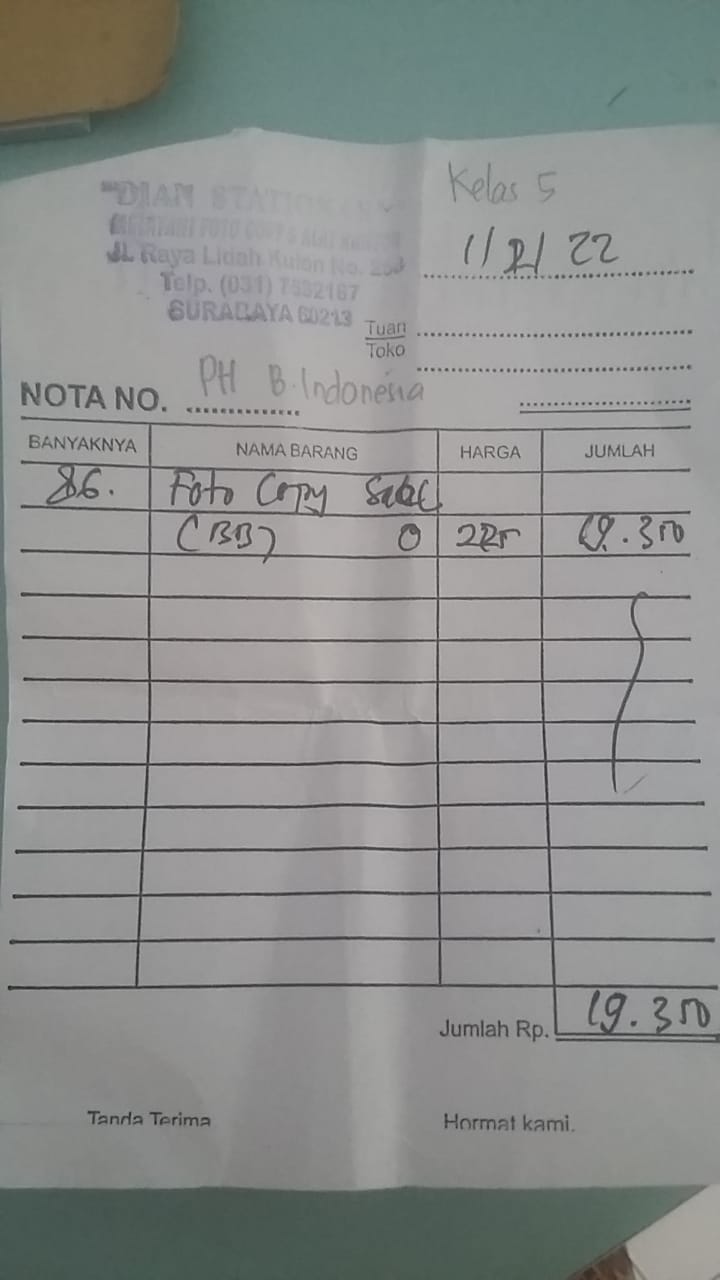 "DIAN STATIONERY"
FOTO COPY & ALAT KANTOR
JL. Raya Lidah Kulon No.
Telp. (031) 7532167
SURABAYA 60213
Kelas 5
1/2/22
Tuan
Toko
NOTA NO. PH B.Indonesia
BANYAKNYA NAMA BARANG HARGA JUMLAH
86. Foto Copy
(BB) @ 225 19.350
Jumlah Rp. 19.350
Tanda Terima Hormat kami.